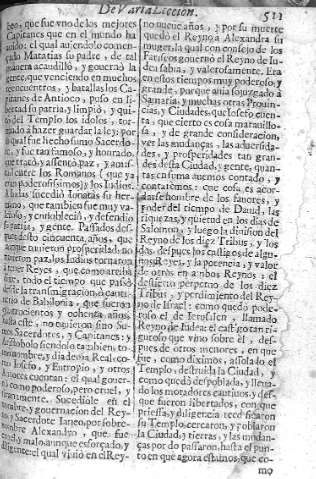 De Varia Leccion. 511
beo, que fue vno de los mejores
Capitanes que en el mundo ha
auido: el qual auiendo lo comen
çado Matatias su padre, de tal
manera acaudilló, y gouernó la
gente, que venciendo en muchos
recuentros, y batallas los Capita
nes de Antioco, puso en li
bertad su patria, y limpió, y qui
tó del Templo los idolos, tor
nado à hazer guardar la ley: por
lo qual fue hecho sumo Sacerdo
te, y fue tan famoso, y honrado,
que trató, y assentó paz, y amis
tad entre los Romanos (que ya
eran poderosissimos) y los Iudios.
A Iudas sucedió Ionatas su her
mano, que tambien fue muy va
leroso, y ennobleció, y defendio
su patria, y gente. Passados des
pues desto cincuenta años, que
siempre tuuieron prosperidad, no
tuuieron paz, los Iudios tornaron
à tener Reyes, que como arriba
dixe, todo el tiempo que passó
desde la transmigracion, ò cauti
uerio de Babilonia, que fueron
quatrocientos y ochenta años,
hasta este, no tuuieron sino Su
mos Sacerdotes, y Capitanes: y
Aristobolo siendolo tambien, to
mó nombre, y diadema Real, co
mo Iosefo, y Eutropio, y otros
Autores cuentan: el qual gouer
nó como poderoso, pero cruel, y
tiranamente. Sucediole en el
nombre, y gouernacion del Rey
no, y Sacerdote Ianeo, por sobre
nombre Alexandro, que fue
tenido malo, aunque esforçado, y
diligente: el qual viuió en el Rey-
no nueue años, y por su muerte
quedó el Reyno a Alexandra su
muger, la qual con consejo de los
Fariseos gouernó el Reyno de Iu
dea sabia, y valerosamente. Era
en estos tiempos muy poderoso, y
grande, porque auia sojuzgado à
Samaria, y muchas otras Prouin
cias, y Ciudades, que Iosefo cuen
ta, que cierto es cosa marauillo
sa, y de grande consideracion
ver las mudanças, las aduersida
des, y prosperidades tan gran
des dessa Ciudad, y gente, quan
tas en suma auemos contado, y
contarèmos: que cosa es acor
darse hombre de los fauores, y
poder del tiempo de Dauid, las
riquezas, y quietud en los dias de
Salomon, y luego la diuision del
Reyno de los diez Tribus, y los
dos, despues los castigos de algu
nos Reyes, y la potencia, y valor
de otros en ambos Reynos: el
destierro perpetuo de los diez
Tribus, y perdimiento del Rey
no de Israel: como quedó pode
roso el de Ierusalen, llamado
Reyno de Iudea: el castigo tan ri
guroso que vino sobre él, des
pues de otros menores, en que
fue, como diximos, assolado el
Templo, destruida la Ciudad, y
como quedó despoblada, y lleua
dos los moradores cautiuos, y des
que fueron libertados, con que
priessa, y diligencia reedificaron
su Templo, cercaron, y poblaron
la Ciudad, y tierras, y las mudan
ças por do passaron, hasta el pun
to en que agora estamos, que co-
mo